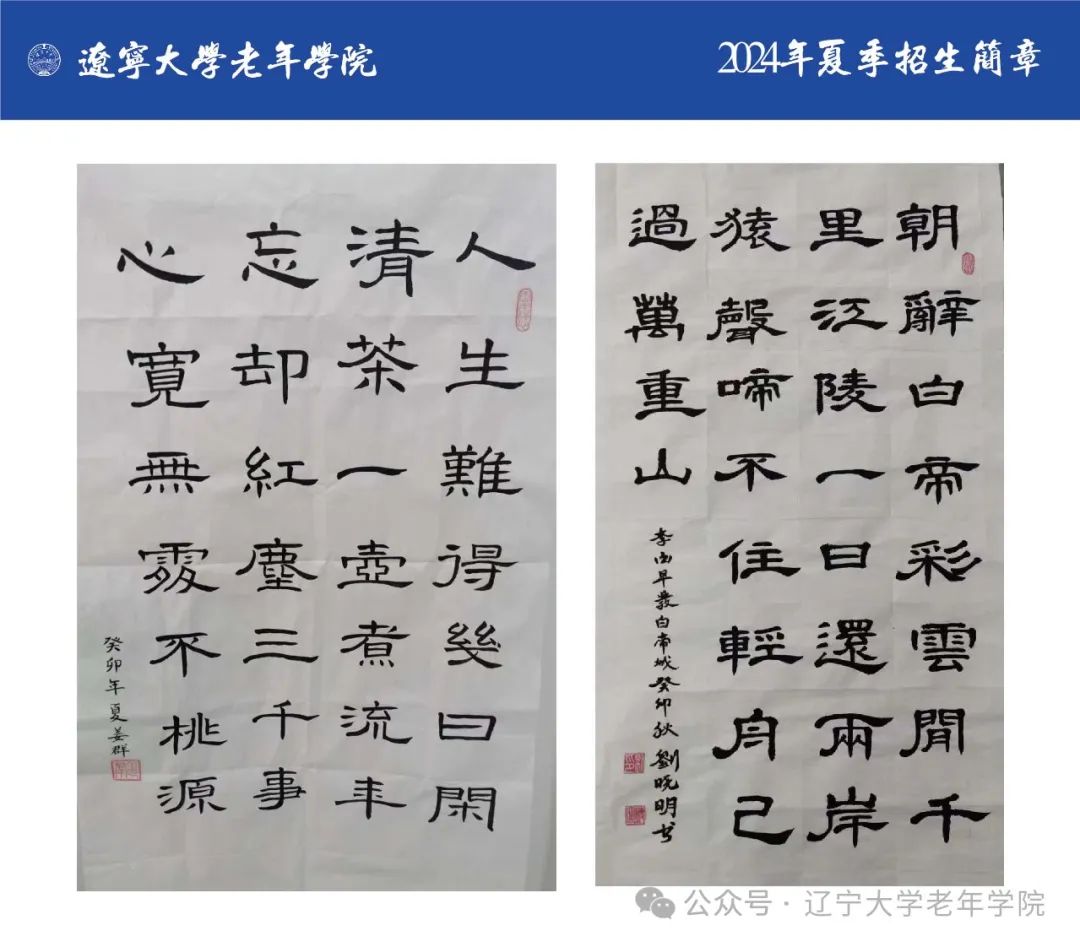 遼寧大學老年學院
2024年夏季招生簡章
人生難得幾日閑
清茶一壺煮流年
忘却紅塵三千事
心寬無處不桃源
癸卯年夏姜群
朝辭白帝彩雲間千
里江陵一日還兩岸
猿聲啼不住輕舟已
過萬重山
李白早發白帝城癸卯秋劉晓明书
公众号·辽宁大学老年学院